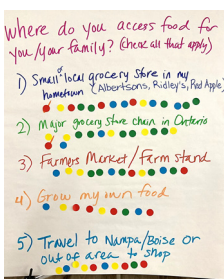 Where do you access food for
you/your family? (Check all that apply)
1) Small local grocery store in my
hometown (Albertsons, Ridley's, Red Apple)
2) Major grocery store chain in Ontario
3) Farmers Market/Farm stand
4) Grow my own food
5) Travel to Nampa/Boise or
out of area to shop